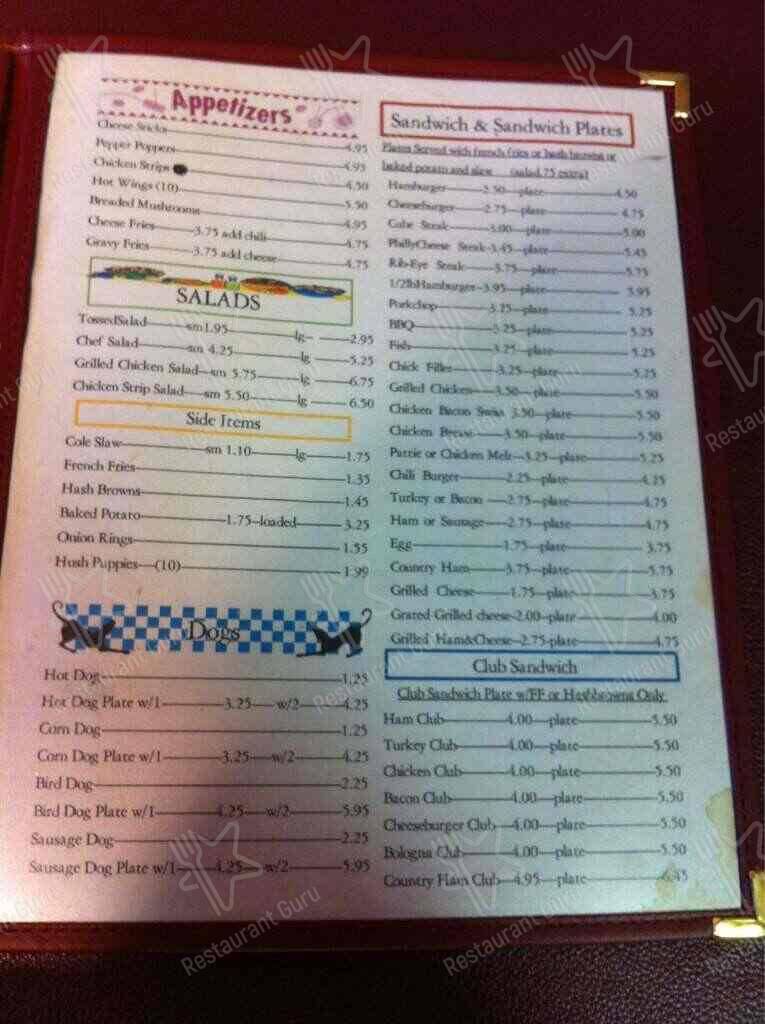 Appetizers
Cheese Sticks 4.95
Pepper Poppers 4.95
Chicken Strips 4.50
Hot Wings (10) 5.50
Breaded Mushrooms 4.95
Cheese Fries 3.75 add chili 4.75
Gravy Fries 3.75 add cheese 4.75
SALADS
TossedSalad sm1.95 lg 2.95
Chef Salad sm 4.25 lg 5.25
Grilled Chicken Salad sm 5.75 lg 6.75
Chicken Strip Salad sm 5.50 lg 6.50
Side Items
Cole Slaw sm 1.10 lg 1.75
French Fries 1.35
Hash Browns 1.45
Baked Potato 1.75 loaded 3.25
Onion Rings 1.55
Hush Puppies (10) 1.99
Dogs
Hot Dog 1.25
Hot Dog Plate w/1 3.25 w/2 4.25
Corn Dog 1.25
Corn Dog Plate w/1 3.25 w/2 4.25
Bird Dog 2.25
Bird Dog Plate w/1 4.25 w/2 5.95
Sausage Dog 2.25
Sausage Dog Plate w/1 4.25 w/2 5.95
Sandwich & Sandwich Plates
Plates Served with french fries or hash browns or
baked potato and slaw (salad .75 extra)
Hamburger 2.50 plate 4.50
Cheeseburger 2.75 plate 4.75
Cube Steak 3.00 plate 5.00
PhillyCheese Steak 3.45 plate 5.45
Rib-Eye Steak 3.75 plate 5.75
1/2lbHamburger 3.95 plate 5.95
Porkchop 3.25 plate 5.25
BBQ 3.25 plate 5.25
Fish 3.25 plate 5.25
Chick Fillet 3.25 plate 5.25
Grilled Chicken 3.50 plate 5.50
Chicken Bacon Swiss 3.50 plate 5.50
Chicken Breast 3.50 plate 5.50
Pattie or Chicken Melt 3.25 plate 5.25
Chili Burger 2.25 plate 4.25
Turkey or Bacon 2.75 plate 4.75
Ham or Sausage 2.75 plate 4.75
Egg 1.75 plate 3.75
Country Ham 3.75 plate 5.75
Grilled Cheese 1.75 plate 3.75
Grated Grilled cheese 2.00 plate 4.00
Grilled Ham&Cheese 2.75 plate 4.75
Club Sandwich
Club Sandwich Plate w/FF or Hashbrowns Only
Ham Club 4.00 plate 5.50
Turkey Club 4.00 plate 5.50
Chicken Club 4.00 plate 5.50
Bacon Club 4.00 plate 5.50
Cheeseburger Club 4.00 plate 5.50
Bologna Club 4.00 plate 5.50
Country Ham Club 4.95 plate 6.45
Restaurant Guru